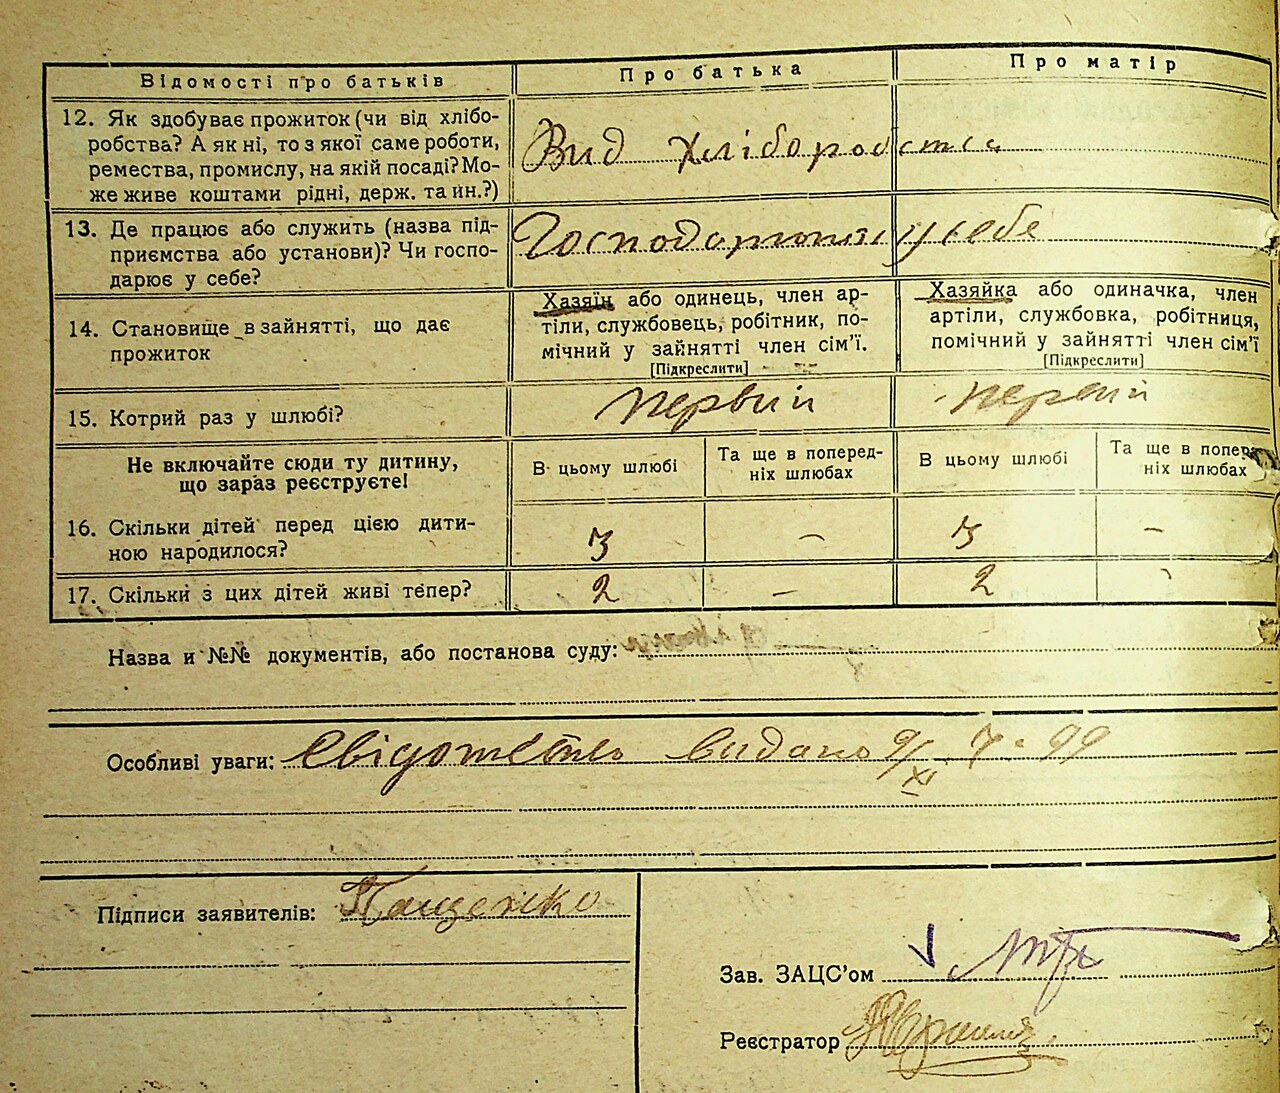 Відомості про батьків
Про батька
Про матір
12. Як здобуває прожиток (чи від хлібо-
робства? А як ні, то з якої саме роботи,
ремества, промислу, на якій посаді? Мо-
же живе коштами рідні, держ. та ин.?)
Вид хліборобства
13. Де працює або служить (назва під-
приємства або установи)? Чи госпо-
дарює у себе?
у себе
14. Становище в зайнятті, що дає
прожиток
Хазяїн або одинець, член ар-
тіли, службовець, робітник, по-
мічний у зайнятті член сім'ї.
[Підкреслити]
Хазяйка або одиначка, член
артіли, службовка, робітниця,
помічний у зайнятті член сім'ї
[Підкреслити]
15. Котрий раз у шлюбі?
первий
первий
Не включайте сюди ту дитину,
що зараз реєструєте!
В цьому шлюбі
Та ще в поперед-
ніх шлюбах
В цьому шлюбі
Та ще в попер
ніх шлюбах
16. Скільки дітей перед цією дити-
ною народилося?
3
–
3
–
17. Скільки з цих дітей живі тепер?
2
–
2
Назва и №№ документів, або постанова суду:
Особливі уваги:
видано 9/XI
Підписи заявителів: Пащенко
Зав. ЗАЦС'ом
Реєстратор